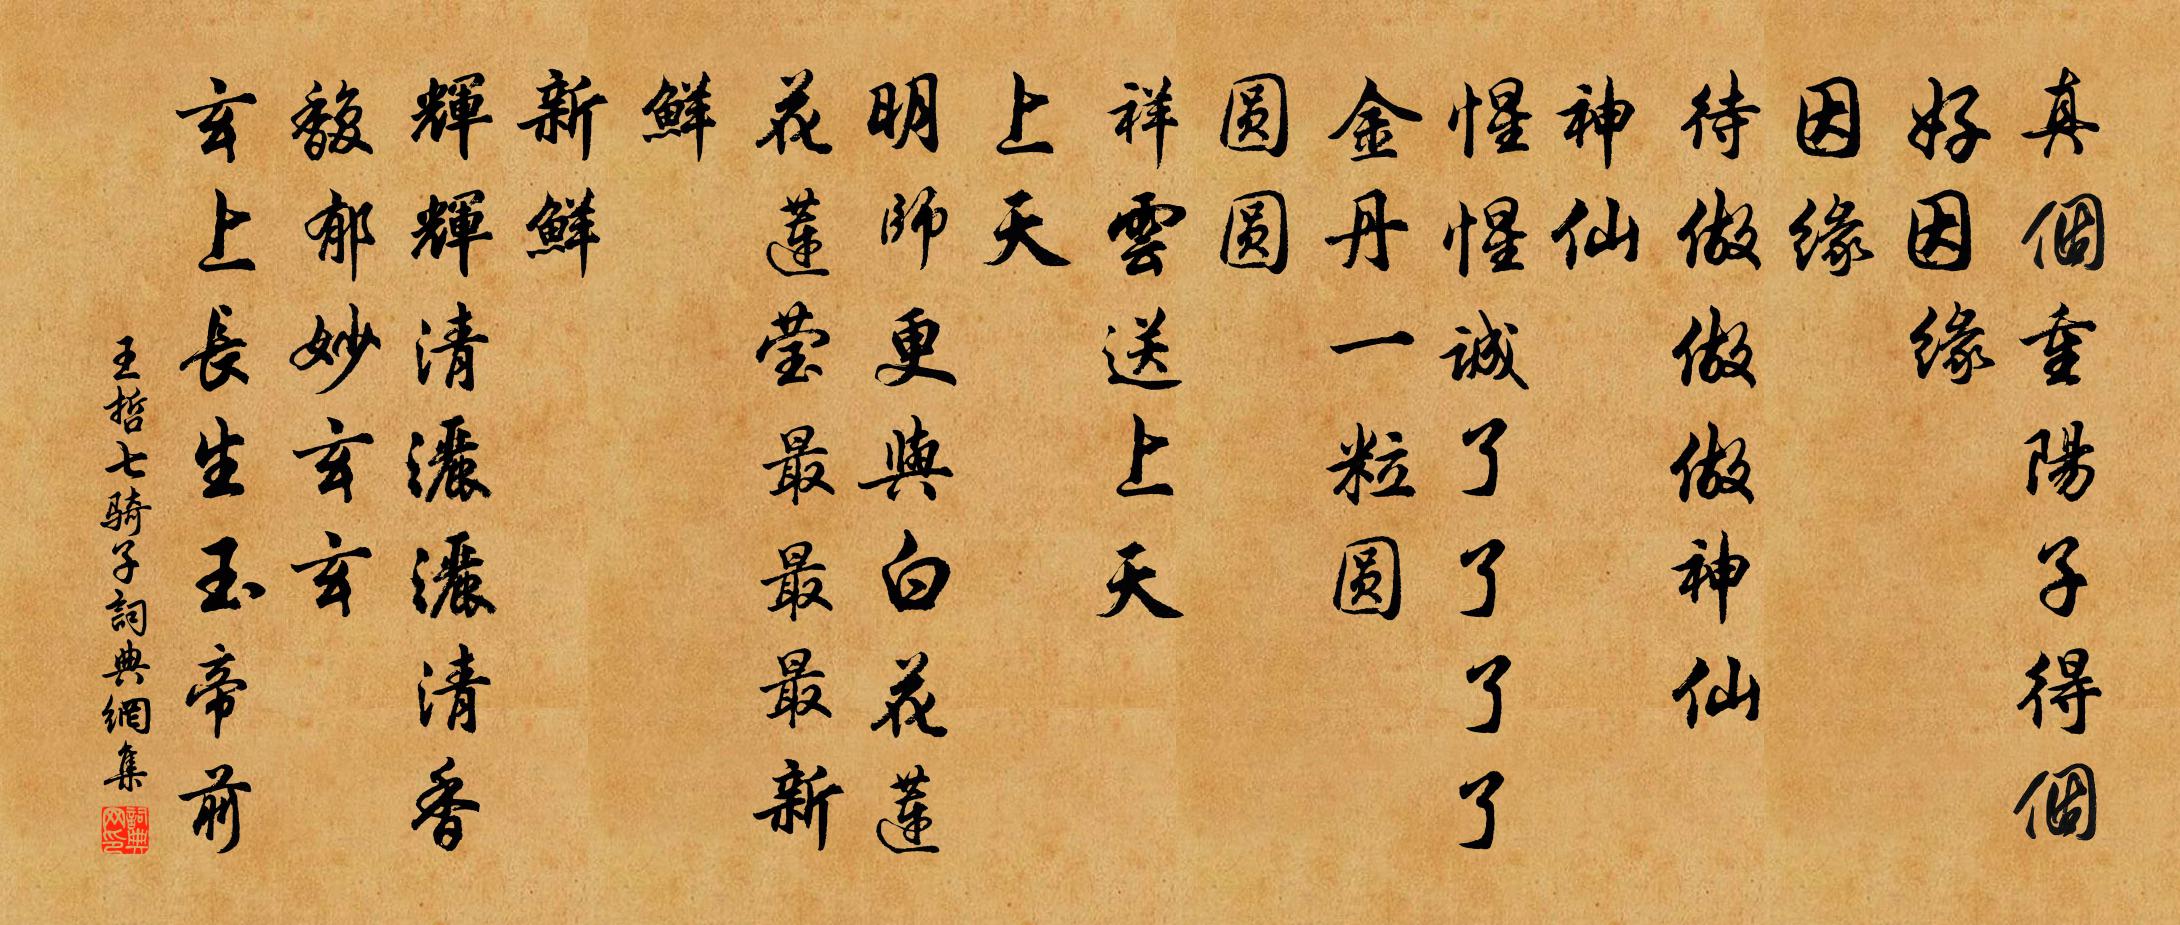 真個重陽子得個
好因緣
因緣
待做做做神仙
神仙
惺惺誠了了了了
金丹一粒圓
圓圓
祥雲送上天
上天
明師更與白花蓮
花蓮瑩最最最新
鮮
新鮮
輝輝清灑灑清香
馥郁妙玄玄
玄上長生玉帝前
王哲七骑子詞典網集
詞典网印